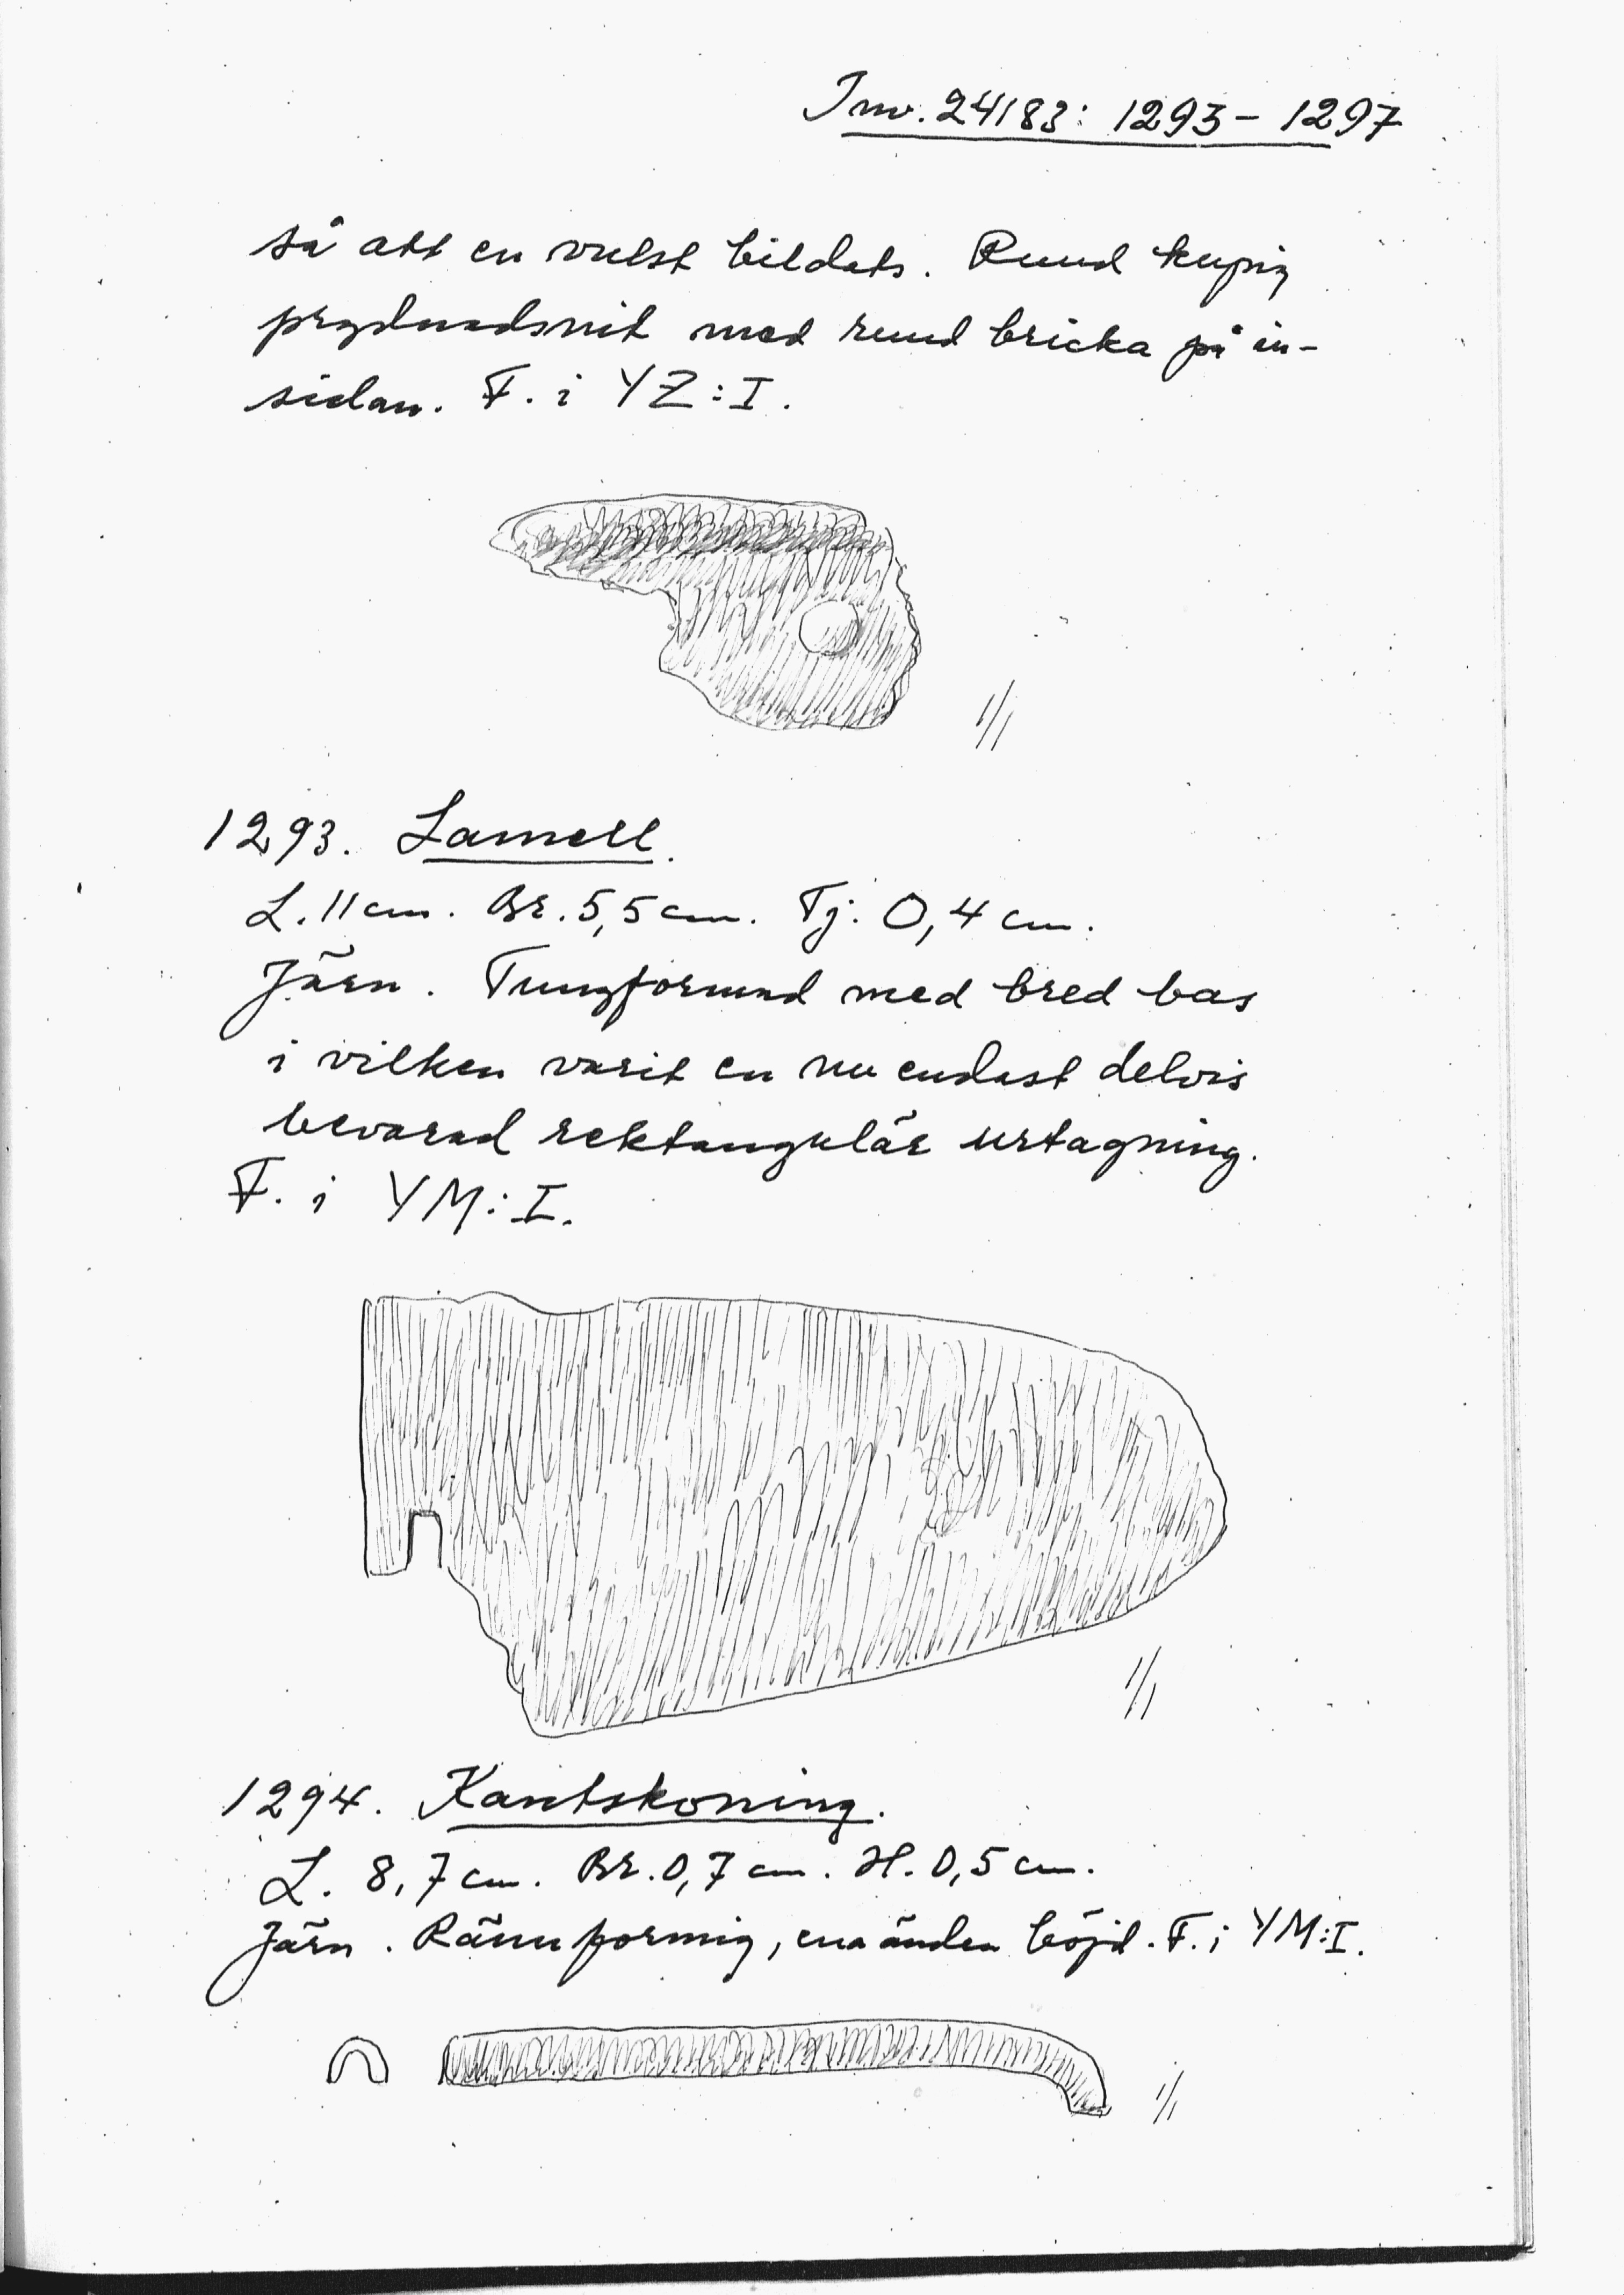 Inv. 24183: 1293 – 1297
så att en vulst bildats. Rund kupig
prydnadsnit med rund bricka på in-
sidan. F. i YZ:I.
1/1
1293. Lamell.
L. 11 cm. Br. 5,5 cm. Tj. 0,4 cm.
Järn. Tungformad med bred bas
i vilken varit en nu endast delvis
bevarad rektangulär urtagning.
F. i YM:I.
1/1
1294. Kantskoning.
L. 8,7 cm. Br. 0,7 cm. H. 0,5 cm.
Järn. Rännformig, ena änden böjd. F. i YM:I.
1/1